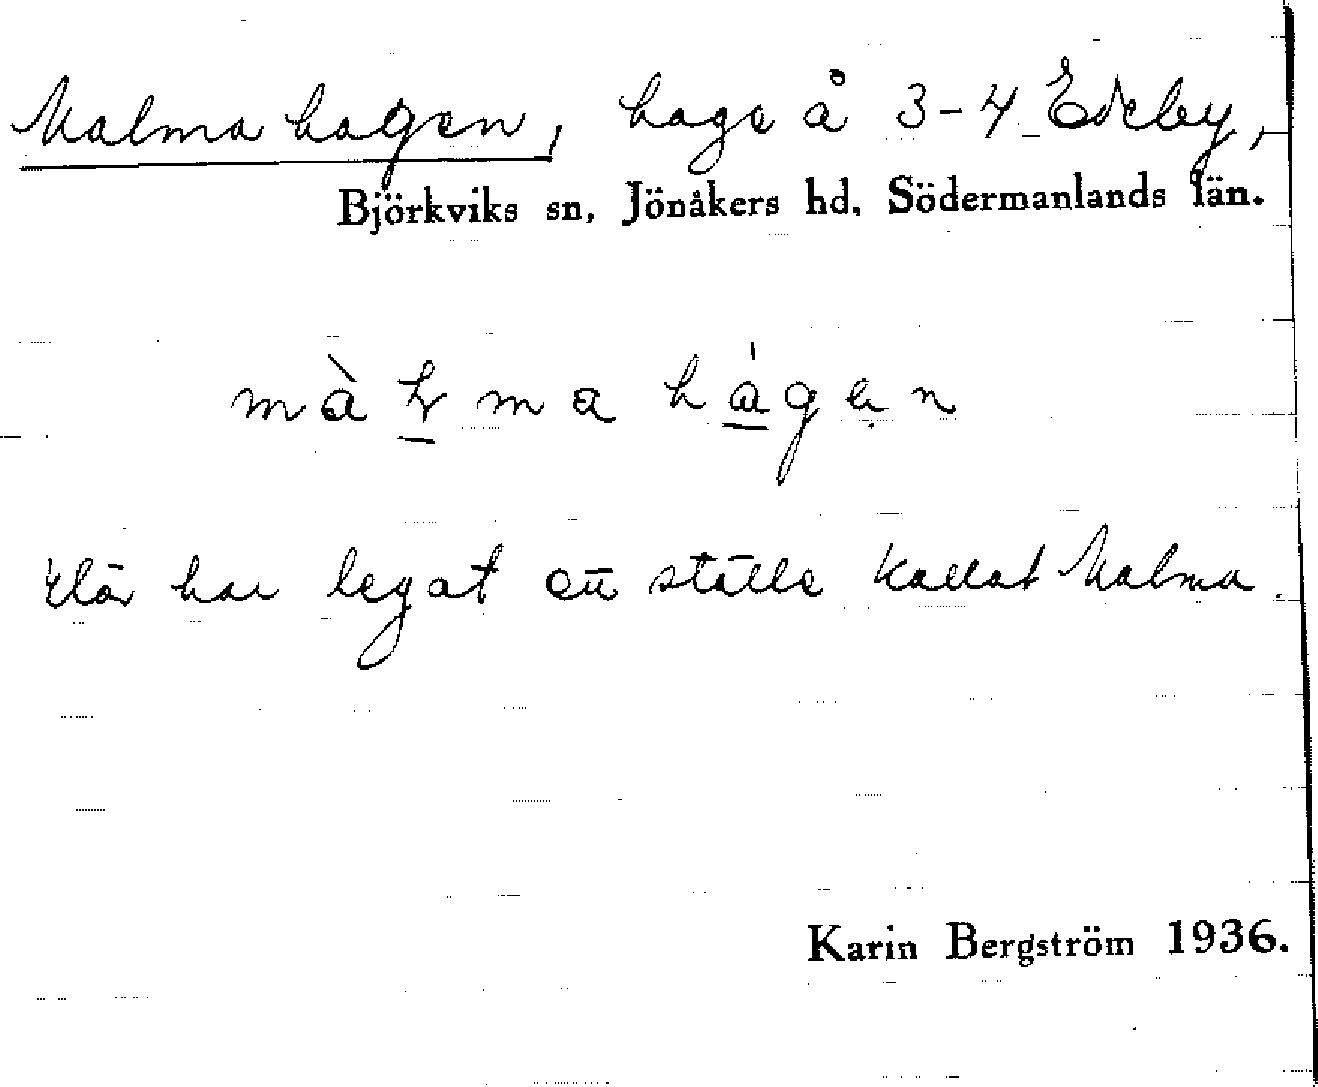 Malmahagen, hage å 3-4 Edeby,
Björkviks sn, Jönåkers hd, Södermanlands län.
màḻma há̱gen
Här har legat ett ställe kallat Malma.
Karin Bergström 1936.